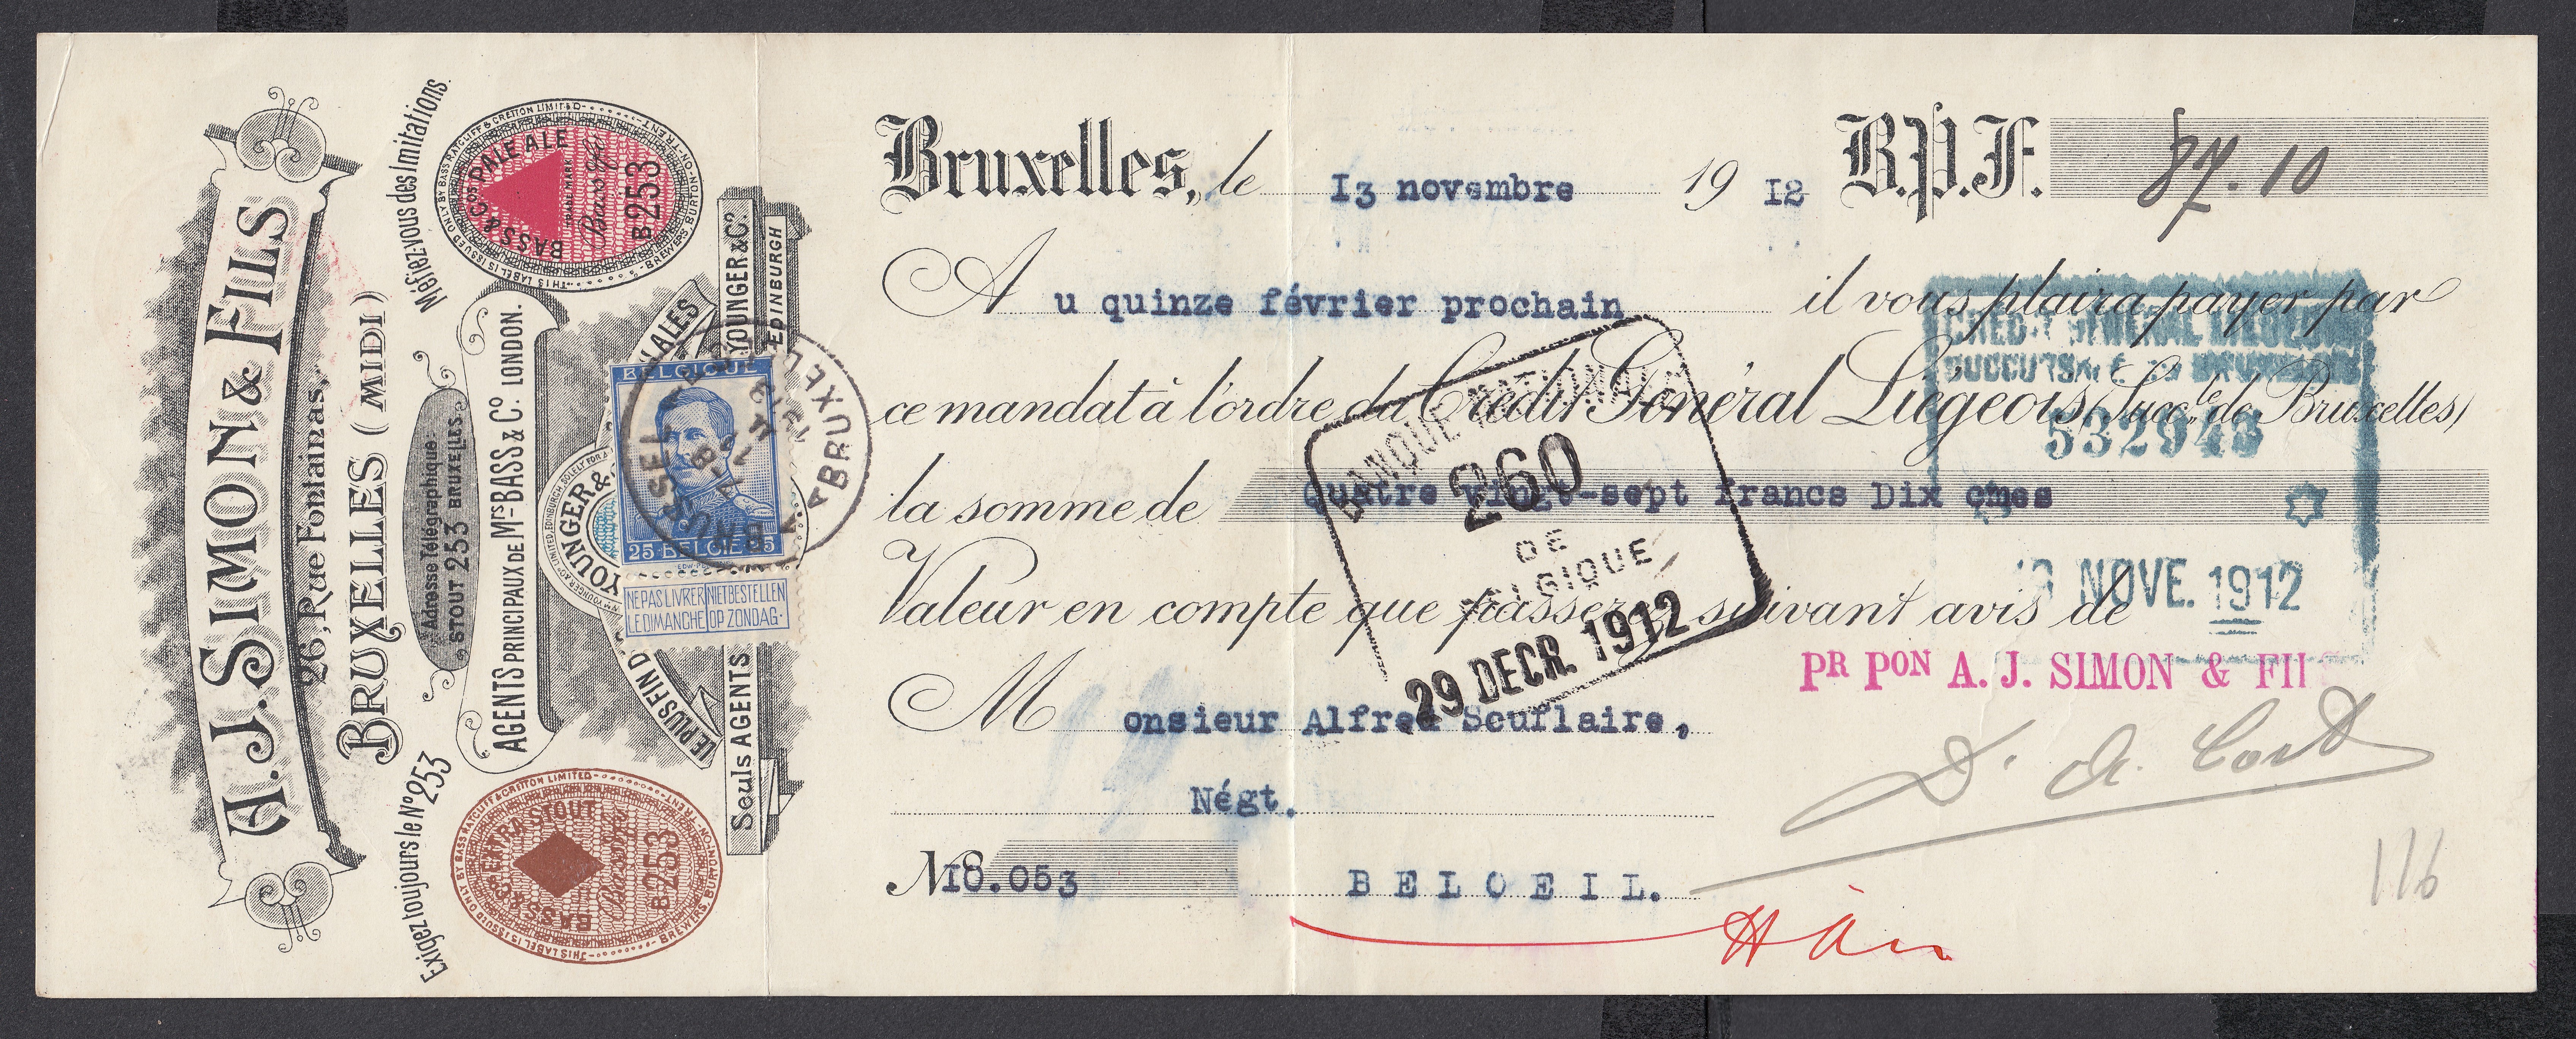 A.J. SIMON & FILS
26, Rue Fontainas,
BRUXELLES (MIDI)
Méfiez-vous des Imitations.
Adresse Télégraphique:
STOUT 253 BRUXELLES.
Exigez toujours le No 253
AGENTS PRINCIPAUX DE Mrs BASS & Co. LONDON.
THIS LABEL IS ISSUED ONLY BY BASS RATCLIFF & GRETTON LIMITED
BREWERS BURTON-ON-TRENT
BASS & Cos PALE ALE
TRADE MARK
B253
THIS LABEL IS ISSUED ONLY BY BASS RATCLIFF & GRETTON LIMITED
BREWERS BURTON-ON-TRENT
BASS & Cos EXTRA STOUT
B253
YOUNGER &
LE PLUS FIN D
ALES
Seuls AGENTS
YOUNGER & Co.
EDINBURGH
BELGIQUE
25 BELGIË 25
NE PAS LIVRER LE DIMANCHE
NIET BESTELLEN OP ZONDAG.
BRUXELLES
BRUSSEL
Bruxelles, le 13 novembre 19 12 B.P.F. 87.10
Au quinze février prochain il vous plaira payer par
ce mandat à l'ordre du Crédit Général Liégeois (Succle de Bruxelles)
la somme de Quatre vingt-sept francs Dix cmes
Valeur en compte que passerez suivant avis de
Monsieur Alfred Scuflaire,
Négt.
No 18.053 BELOEIL.
BANQUE NATIONALE
260
DE
BELGIQUE
29 DECR. 1912
CREDIT GENERAL LIEGEOIS
SUCCURSALE DE BRUXELLES
532943
NOVE. 1912
PR PON A. J. SIMON & FI
116